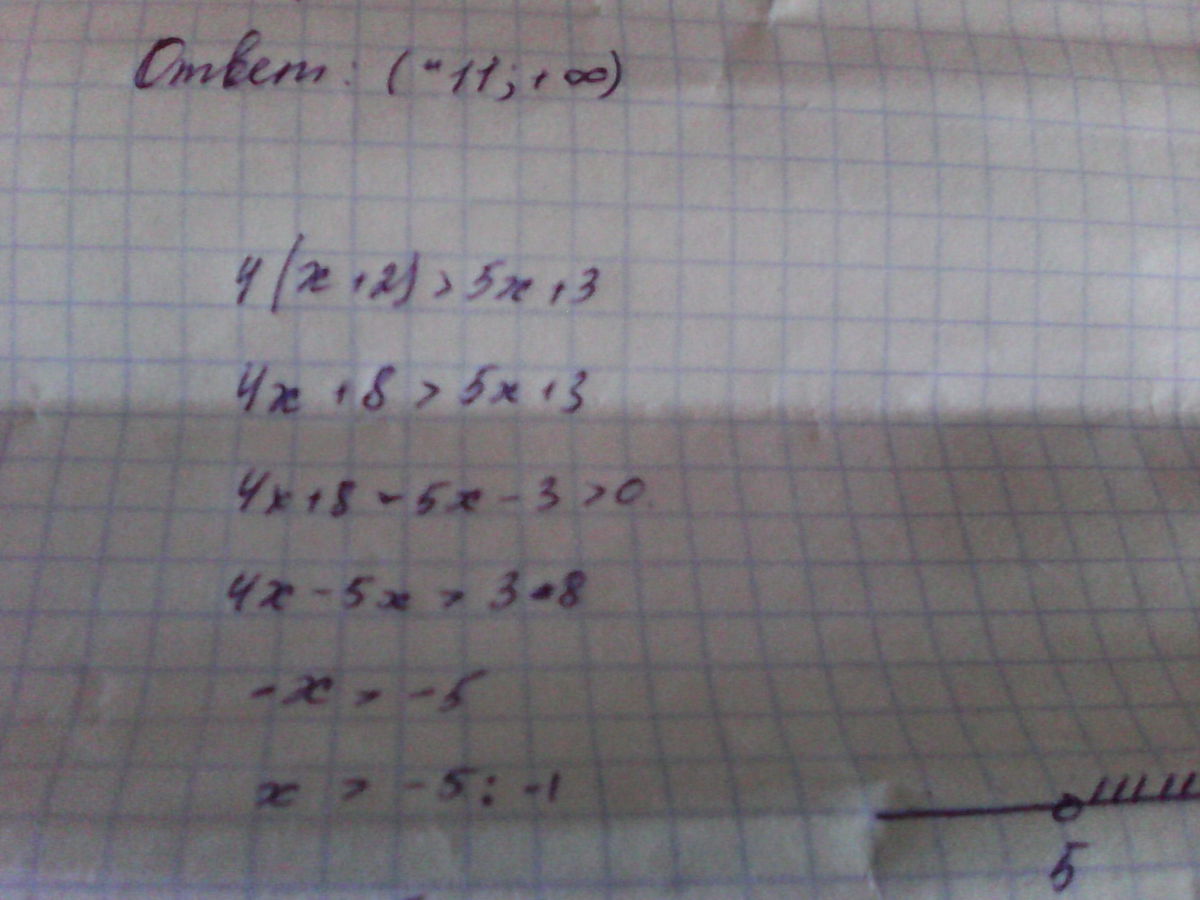 Ответ: (-11; +∞)
4(x+2) > 5x+3
4x+8 > 5x+3
4x+8-5x-3>0
4x-5x > 3-8
-x > -5
x > -5:-1
5